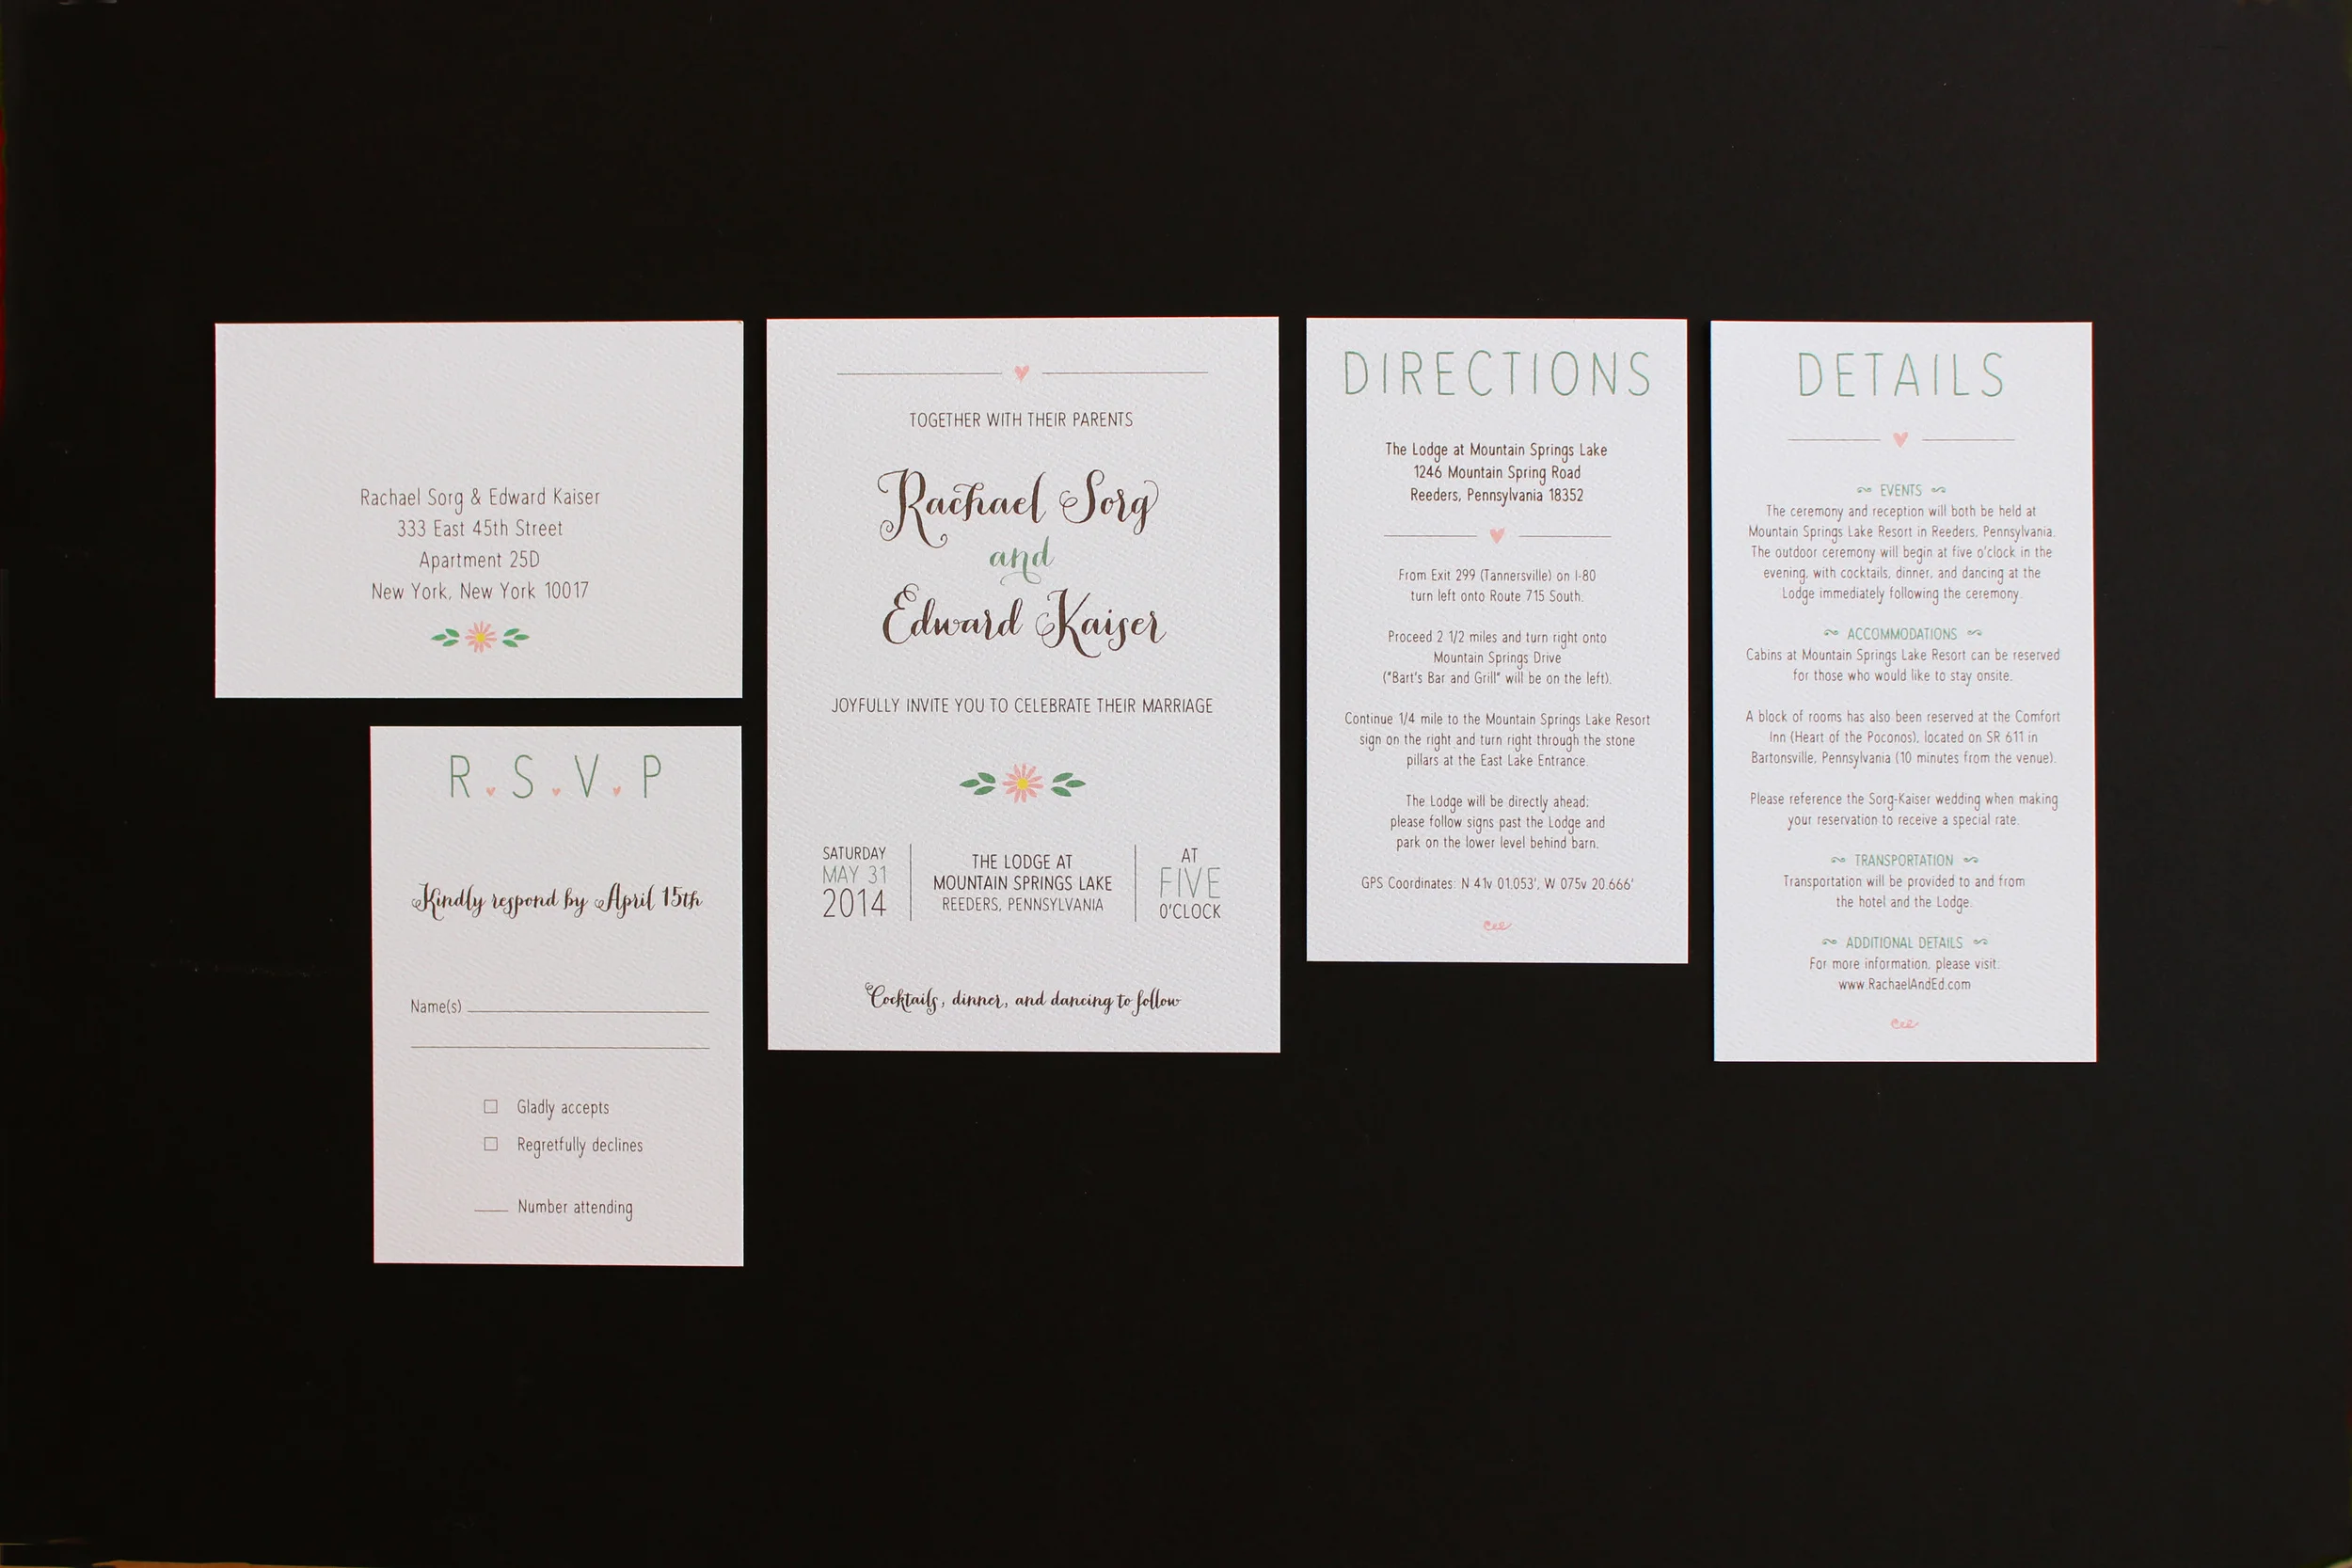 Rachael Sorg & Edward Kaiser
333 East 45th Street
Apartment 25D
New York, New York 10017
R.S.V.P
Kindly respond by April 15th
Name(s)
Gladly accepts
Regretfully declines
Number attending
TOGETHER WITH THEIR PARENTS
Rachael Sorg
and
Edward Kaiser
JOYFULLY INVITE YOU TO CELEBRATE THEIR MARRIAGE
SATURDAY
MAY 31
2014
THE LODGE AT
MOUNTAIN SPRINGS LAKE
REEDERS, PENNSYLVANIA
AT
FIVE
O'CLOCK
Cocktails, dinner, and dancing to follow
DIRECTIONS
The Lodge at Mountain Springs Lake
1246 Mountain Spring Road
Reeders, Pennsylvania 18352
From Exit 299 (Tannersville) on I-80
turn left onto Route 715 South.
Proceed 2 1/2 miles and turn right onto
Mountain Springs Drive
("Bart's Bar and Grill" will be on the left).
Continue 1/4 mile to the Mountain Springs Lake Resort
sign on the right and turn right through the stone
pillars at the East Lake Entrance.
The Lodge will be directly ahead;
please follow signs past the Lodge and
park on the lower level behind barn.
GPS Coordinates: N 41v 01.053', W 075v 20.666'
DETAILS
EVENTS
The ceremony and reception will both be held at
Mountain Springs Lake Resort in Reeders, Pennsylvania.
The outdoor ceremony will begin at five o'clock in the
evening, with cocktails, dinner, and dancing at the
Lodge immediately following the ceremony.
ACCOMMODATIONS
Cabins at Mountain Springs Lake Resort can be reserved
for those who would like to stay onsite.
A block of rooms has also been reserved at the Comfort
Inn (Heart of the Poconos), located on SR 611 in
Bartonsville, Pennsylvania (10 minutes from the venue).
Please reference the Sorg-Kaiser wedding when making
your reservation to receive a special rate.
TRANSPORTATION
Transportation will be provided to and from
the hotel and the Lodge.
ADDITIONAL DETAILS
For more information, please visit:
www.RachaelAndEd.com